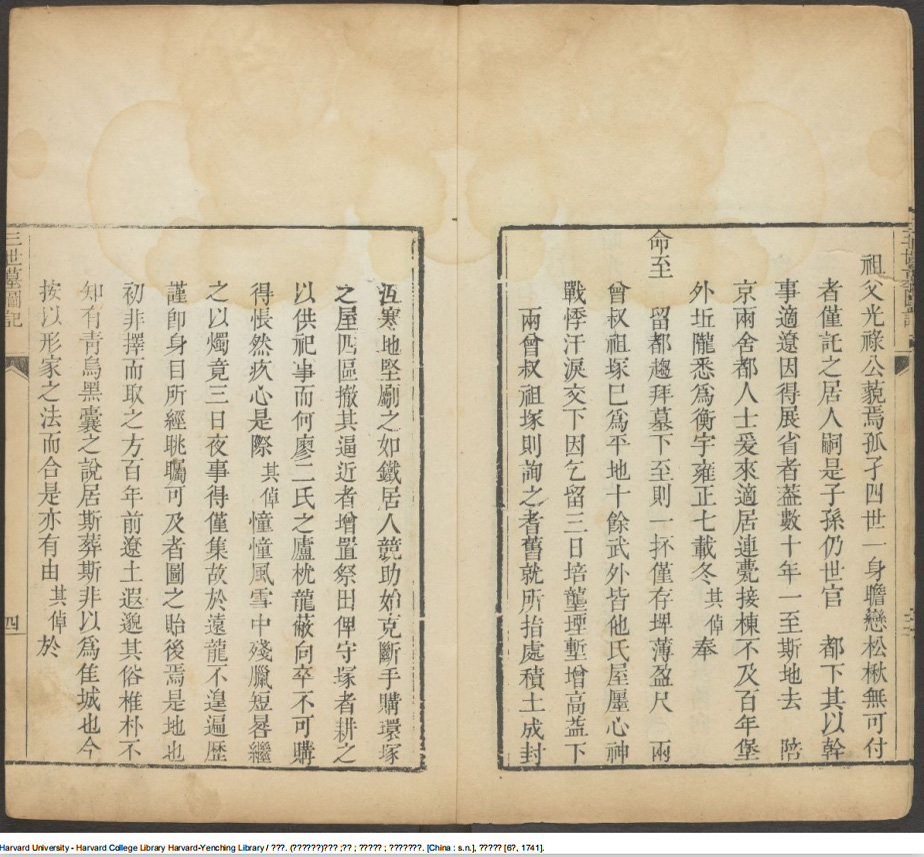 祖父光祿公藐焉孤孑四世一身瞻戀松楸無可付
者僅託之居人嗣是子孫仍世官 都下其以幹
事適遼因得展省者葢數十年一至斯地去 陪
京兩舍都人士爰來適居連甍接棟不及百年堡
外坵隴悉爲衡宇雍正七載冬其倬奉
命至 留都趨拜墓下至則一抔僅存堺薄盈尺 兩
曾叔祖塚已爲平地十餘武外皆他氏屋廛心神
戰悸汗淚交下因乞留三日培壟堙塹增高葢下
兩曾叔祖塚則詢之耆舊就所指處積土成封
沍寒地堅劚之如鐵居人競助始克斷手購環塚
之屋四區撤其逼近者增置祭田俾守塚者耕之
以供祀事而何廖二氏之廬枕龍蔽向卒不可購
得悵然疚心是際其倬憧憧風雪中殘臘短晷繼
之以燭竟三日夜事得僅集故於遠龍不遑遍歷
謹卽身目所經眺矚可及者圖之貽後焉是地也
初非擇而取之方百年前遼土遐邈其俗椎朴不
知有靑烏黑囊之說居斯葬斯非以爲佳城也今
按以形家之法而合是亦有由其倬於
三世墓圖記
四
Harvard University - Harvard College Library Harvard-Yenching Library / ???. (??????)??? ;?? ; ????? ; ???????. [China : s.n.], ????? [6?, 1741].